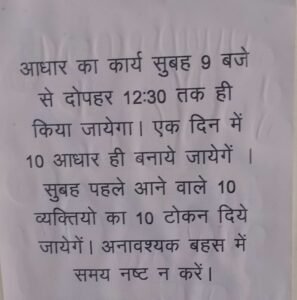 आधार का कार्य सुबह 9 बजे
से दोपहर 12:30 तक ही
किया जायेगा। एक दिन में
10 आधार ही बनाये जायेगें ।
सुबह पहले आने वाले 10
व्यक्तियो का 10 टोकन दिये
जायेगें। अनावश्यक बहस में
समय नष्ट न करें।